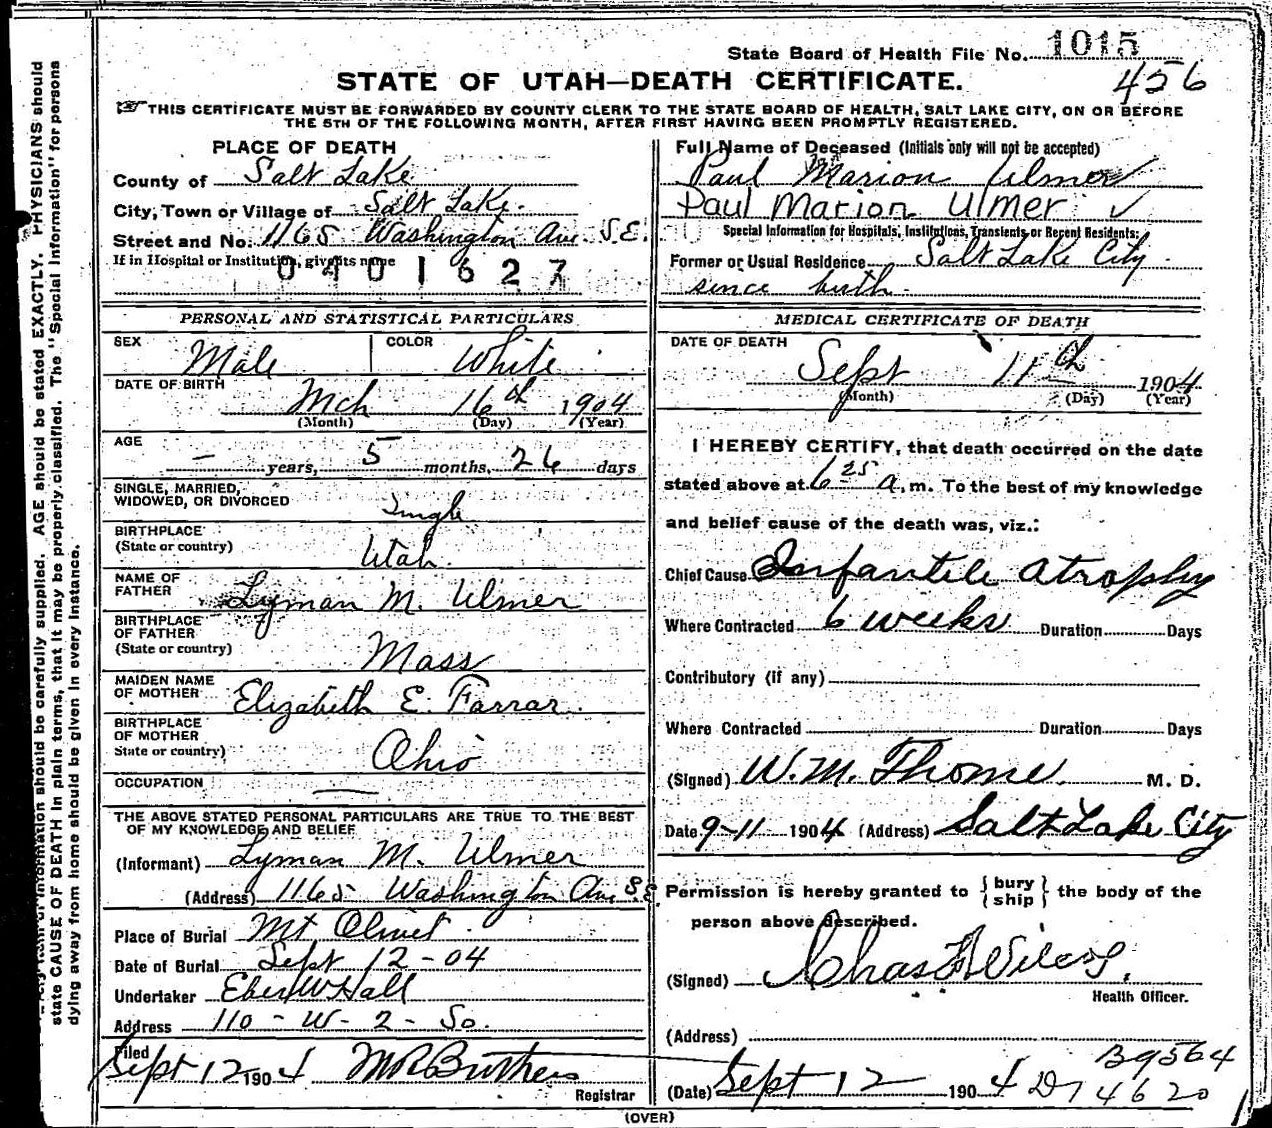 State Board of Health File No. 1015
STATE OF UTAH—DEATH CERTIFICATE.
456
THIS CERTIFICATE MUST BE FORWARDED BY COUNTY CLERK TO THE STATE BOARD OF HEALTH, SALT LAKE CITY, ON OR BEFORE
THE 5TH OF THE FOLLOWING MONTH, AFTER FIRST HAVING BEEN PROMPTLY REGISTERED.
PLACE OF DEATH
County of Salt Lake
City, Town or Village of Salt Lake.
Street and No. 1165 Washington Ave. S.E.
If in Hospital or Institution, give its name
0401627
Full Name of Deceased (Initials only will not be accepted)
Paul Marion Ulmer
Paul Marion Ulmer ✓
Special Information for Hospitals, Institutions, Transients or Recent Residents:
Former or Usual Residence Salt Lake City
since birth
PERSONAL AND STATISTICAL PARTICULARS
SEX Male COLOR White
DATE OF BIRTH Mch 16th 1904
(Month) (Day) (Year)
AGE
– years, 5 months, 26 days
SINGLE, MARRIED,
WIDOWED, OR DIVORCED Single
BIRTHPLACE
(State or country) Utah.
NAME OF
FATHER Lyman M. Ulmer
BIRTHPLACE
OF FATHER
(State or country) Mass
MAIDEN NAME
OF MOTHER Elizabeth E. Farrar
BIRTHPLACE
OF MOTHER
State or country) Ohio
OCCUPATION —
THE ABOVE STATED PERSONAL PARTICULARS ARE TRUE TO THE BEST
OF MY KNOWLEDGE AND BELIEF
(Informant) Lyman M. Ulmer
(Address) 1165 Washington Ave S.E.
Place of Burial Mt Olivet
Date of Burial Sept 12-04
Undertaker Eber W Hall
Address 110 - W - 2 - So.
Filed
Sept 12 1904
Registrar
MEDICAL CERTIFICATE OF DEATH
DATE OF DEATH
Sept 11th 1904
(Month) (Day) (Year)
I HEREBY CERTIFY, that death occurred on the date
stated above at 6 25 a.m. To the best of my knowledge
and belief cause of the death was, viz.:
Chief Cause Infantile atrophy
Where Contracted 6 weeks Duration Days
Contributory (if any)
Where Contracted Duration Days
(Signed) W. M. Thome M. D.
Date 9-11 1904 (Address) Salt Lake City
Permission is hereby granted to {bury
ship} the body of the
person above described.
(Signed) Chas
Health Officer.
(Address)
B9564
(Date) Sept 12 1904 D74620
(OVER)
state CAUSE OF DEATH in plain terms, that it may be properly classified. The "Special Information" for persons
dying away from home should be given in every instance.
information should be carefully supplied. AGE should be stated EXACTLY. PHYSICIANS should